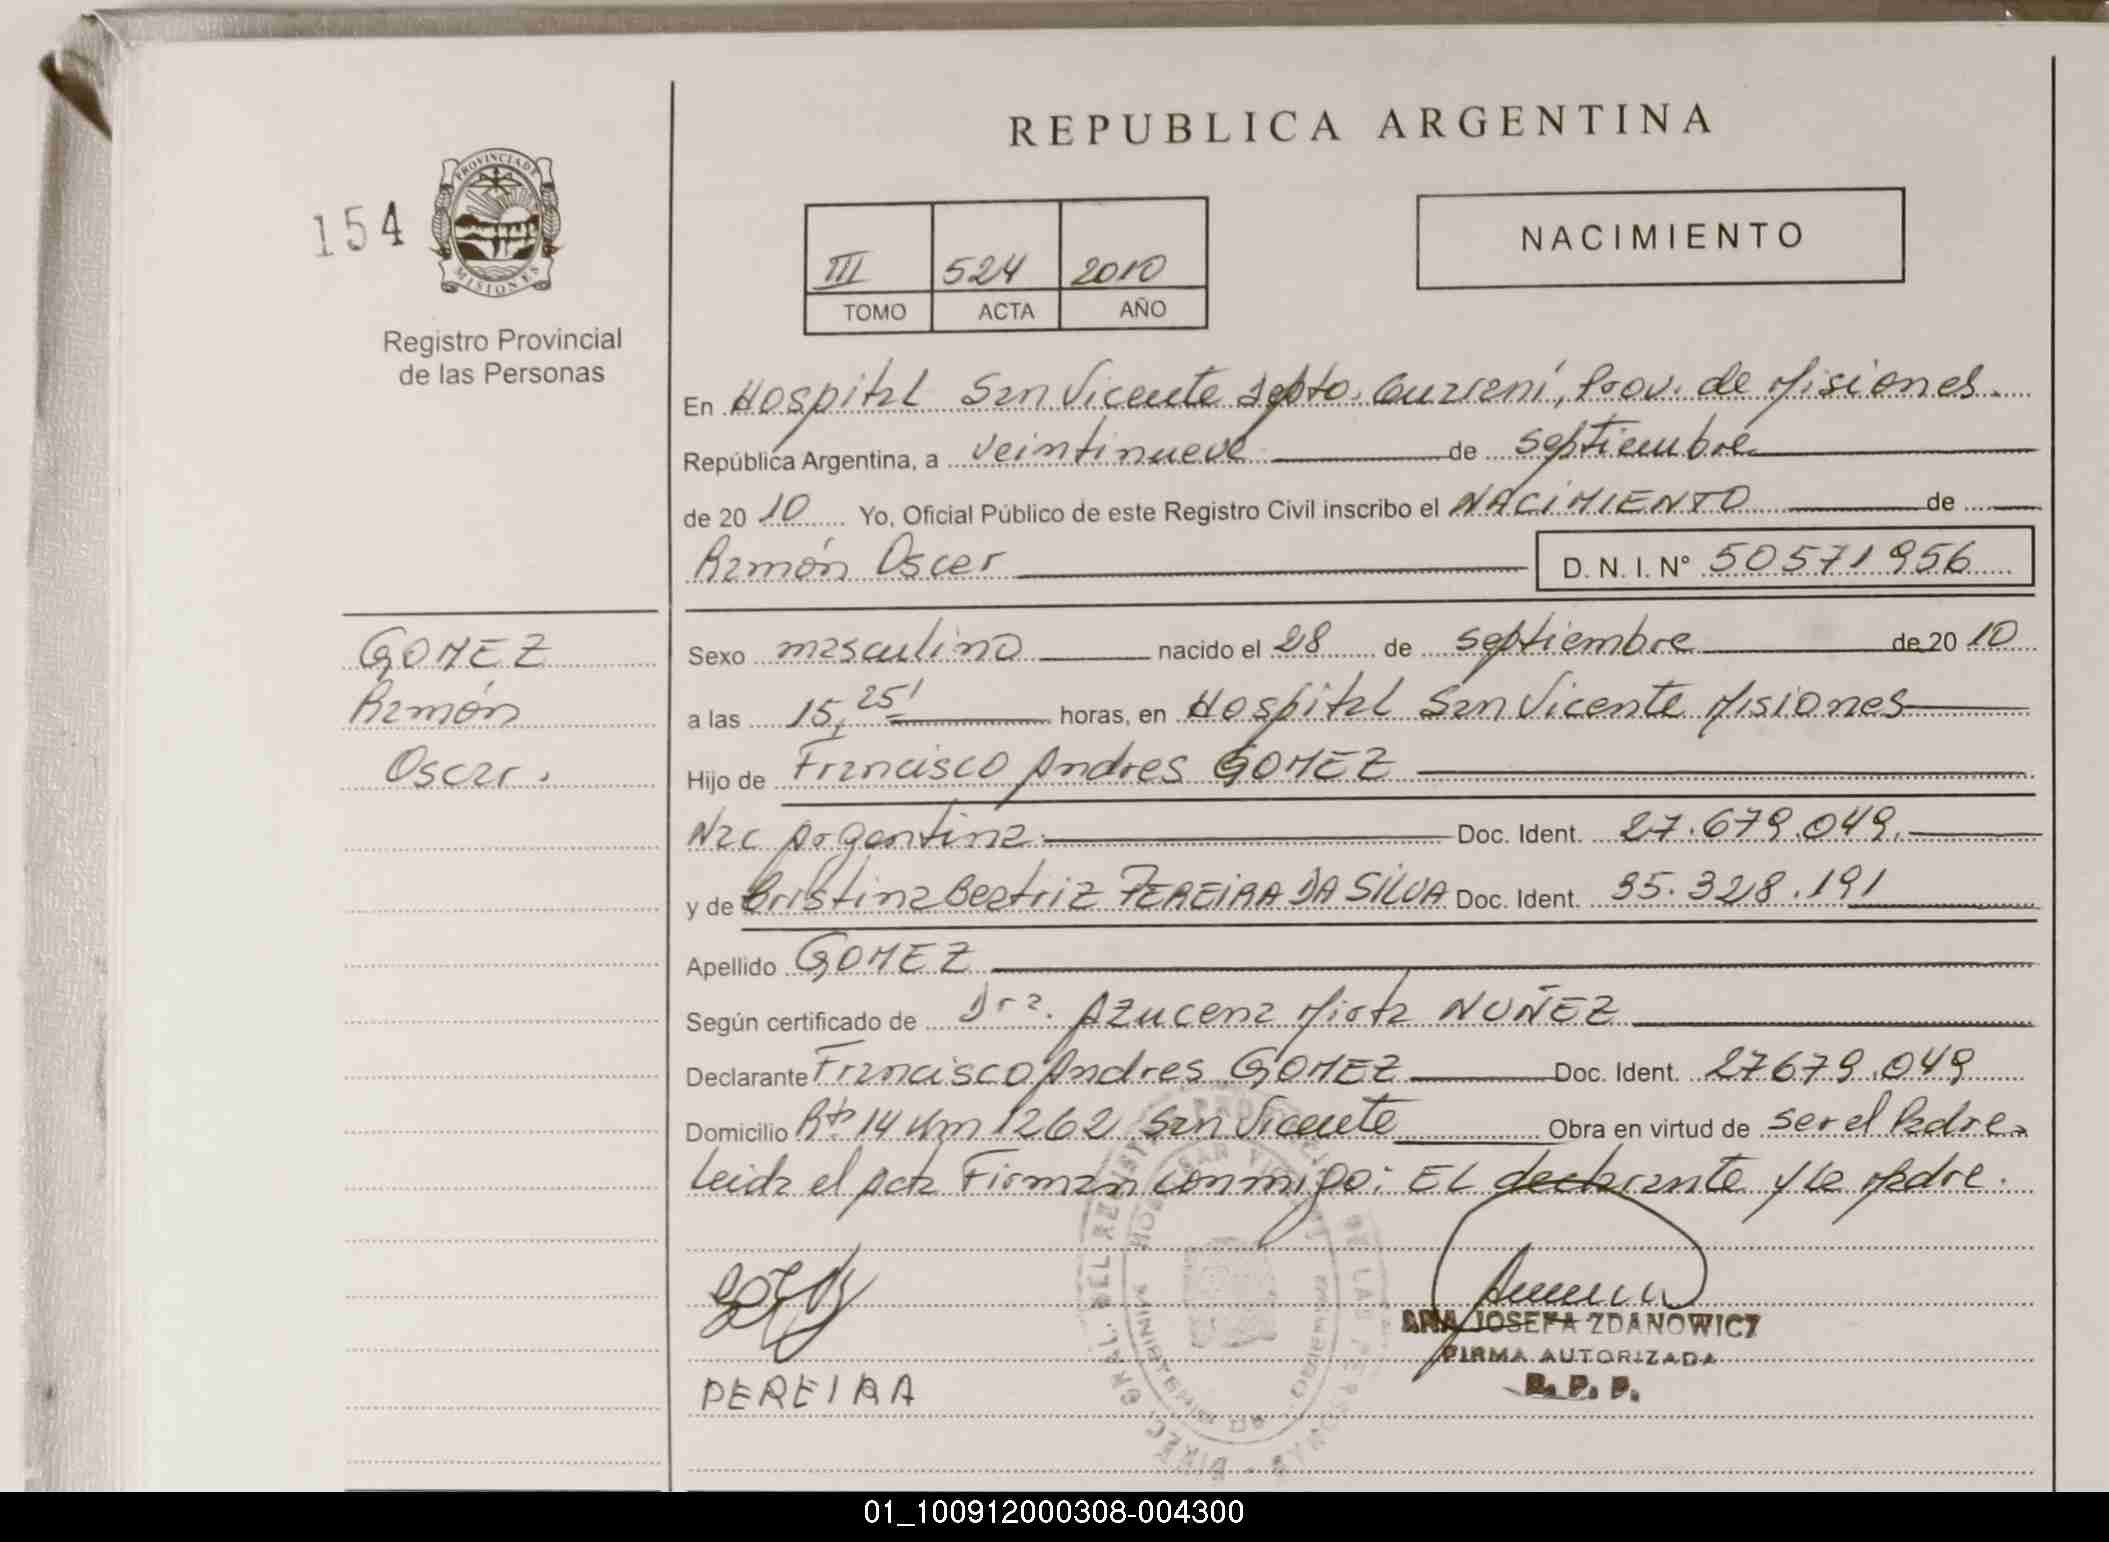 REPUBLICA ARGENTINA
154
PROVINCIA DE
MISIONES
Registro Provincial
de las Personas
III 524 2010
TOMO ACTA AÑO
NACIMIENTO
En Hospital San Vicente Depto. Guaraní, Prov. de Misiones.
República Argentina, a veintinueve de septiembre
de 2010 Yo, Oficial Público de este Registro Civil inscribo el NACIMIENTO de
Ramón Oscar D. N. I. Nº 50571956
GOMEZ
Ramón
Oscar.
Sexo masculino nacido el 28 de septiembre de 2010
a las 15,25' horas, en Hospital San Vicente Misiones
Hijo de Francisco Andres GOMEZ
Nac Argentina. Doc. Ident. 27.679.049.
y de Cristina Beatriz PEREIRA DA SILVA Doc. Ident. 35.328.191
Apellido GOMEZ
Según certificado de Dra. Azucena Mirta NUÑEZ
Declarante Francisco Andres GOMEZ Doc. Ident. 27679.049
Domicilio Rta 14 Km 1262 San Vicente Obra en virtud de ser el Padre.
Leida el acta Firman conmigo: EL declarante y la Madre.
PEREIRA
ANA JOSEFA ZDANOWICZ
FIRMA AUTORIZADA
R. P. P.
01_100912000308-004300